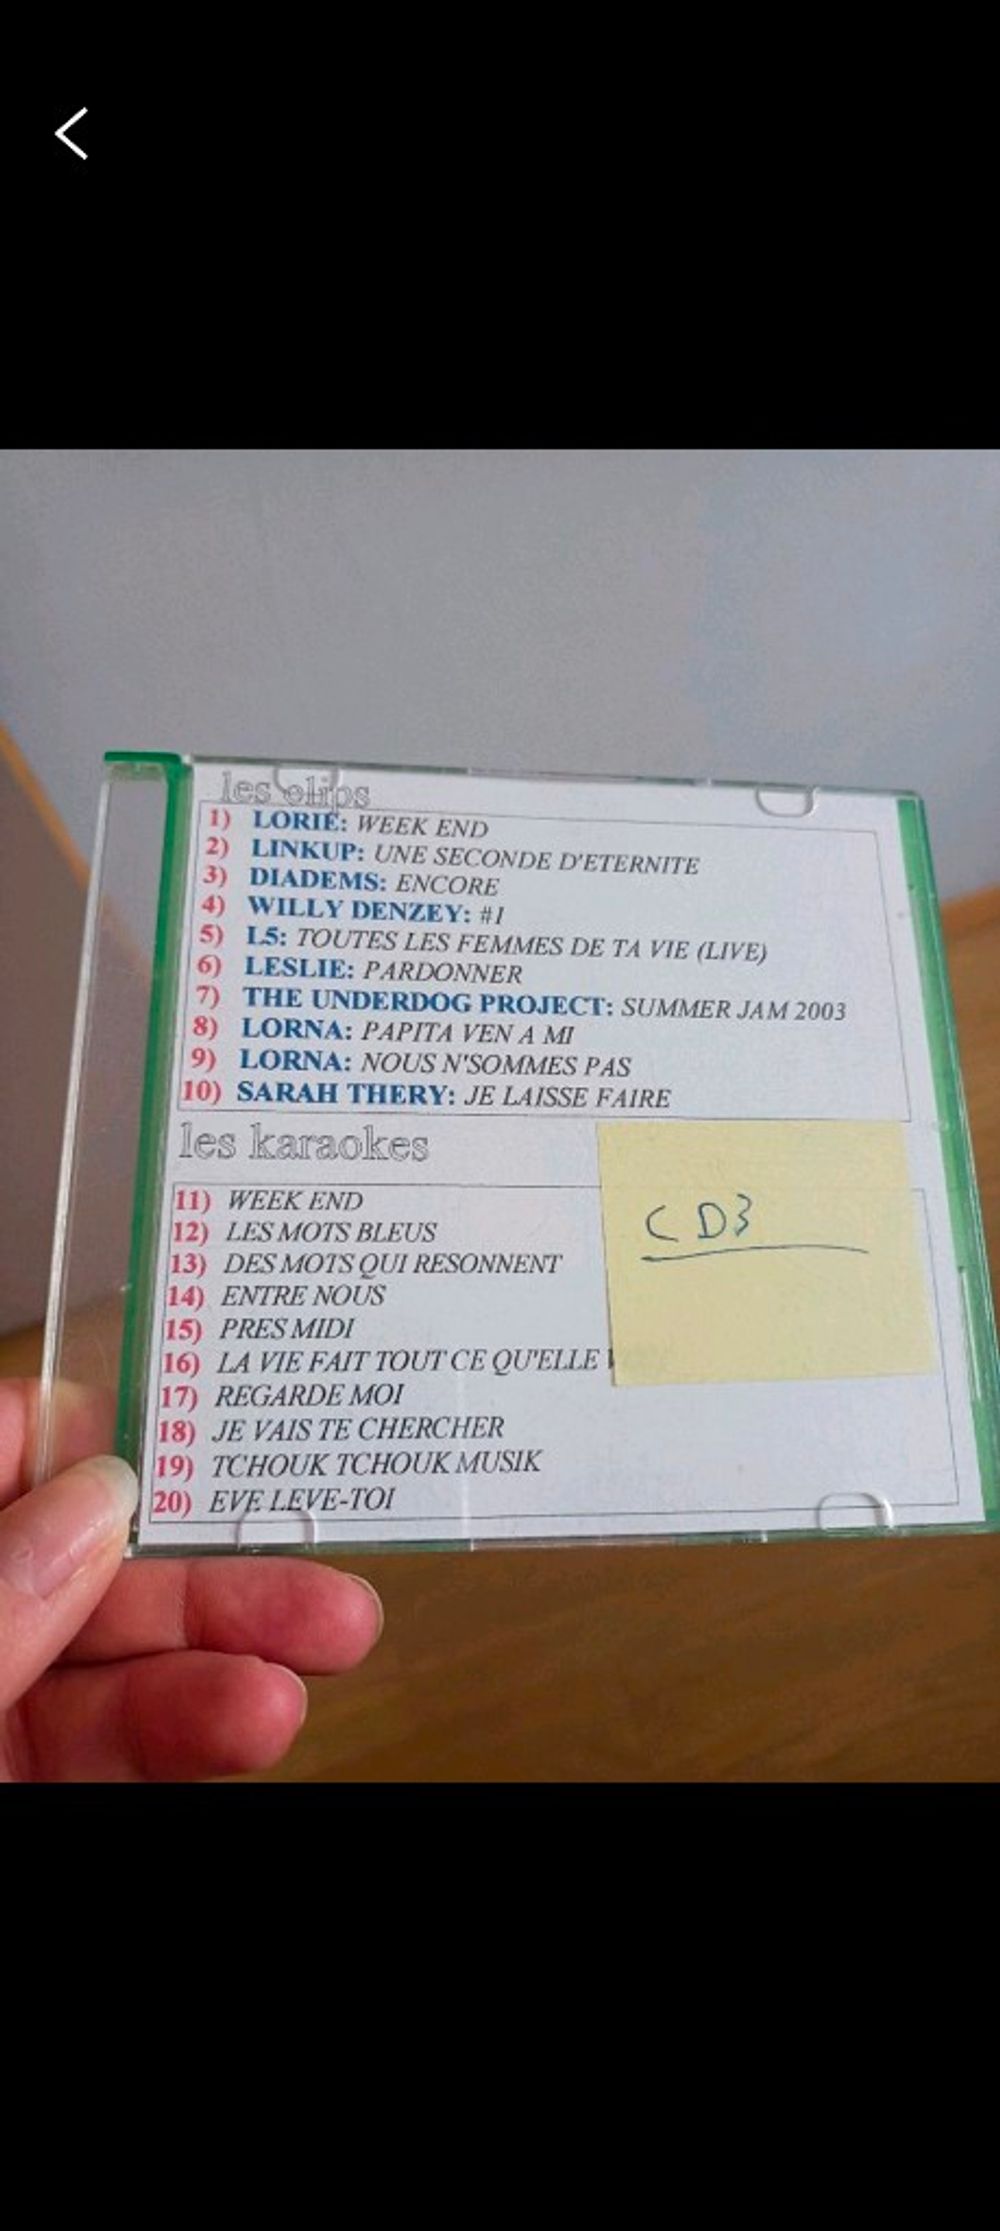 les clips
1) LORIE: WEEK END
2) LINKUP: UNE SECONDE D'ETERNITE
3) DIADEMS: ENCORE
4) WILLY DENZEY: #1
5) L5: TOUTES LES FEMMES DE TA VIE (LIVE)
6) LESLIE: PARDONNER
7) THE UNDERDOG PROJECT: SUMMER JAM 2003
8) LORNA: PAPITA VEN A MI
9) LORNA: NOUS N'SOMMES PAS
10) SARAH THERY: JE LAISSE FAIRE
les karaokes
11) WEEK END
12) LES MOTS BLEUS
13) DES MOTS QUI RESONNENT
14) ENTRE NOUS
15) PRES MIDI
16) LA VIE FAIT TOUT CE QU'ELLE
17) REGARDE MOI
18) JE VAIS TE CHERCHER
19) TCHOUK TCHOUK MUSIK
20) EVE LEVE-TOI
CD3